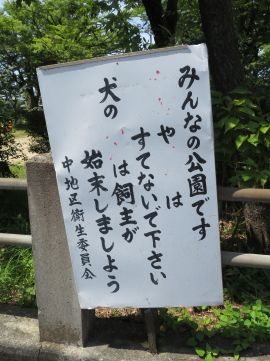 みんなの公園です
や　は
すてないで下さい
犬の　は飼主が
始末しましよう
中地区衛生委員会